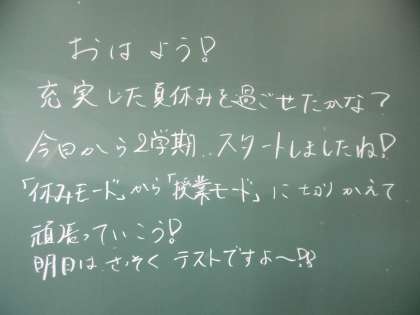 おはよう!
充実した夏休みを過ごせたかな?
今日から2学期..スタートしましたね!
「休みモード」から「授業モード」に切りかえて
頑張っていこう!
明日は さっそく テストですよ〜!?